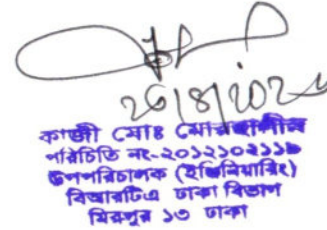 কাজী মোঃ
পরিচিতি নং-২০১২১০২১১৮
উপপরিচালক (ইঞ্জিনিয়ারিং)
বিআরটিএ ঢাকা বিভাগ
মিরপুর ১৩ ঢাকা